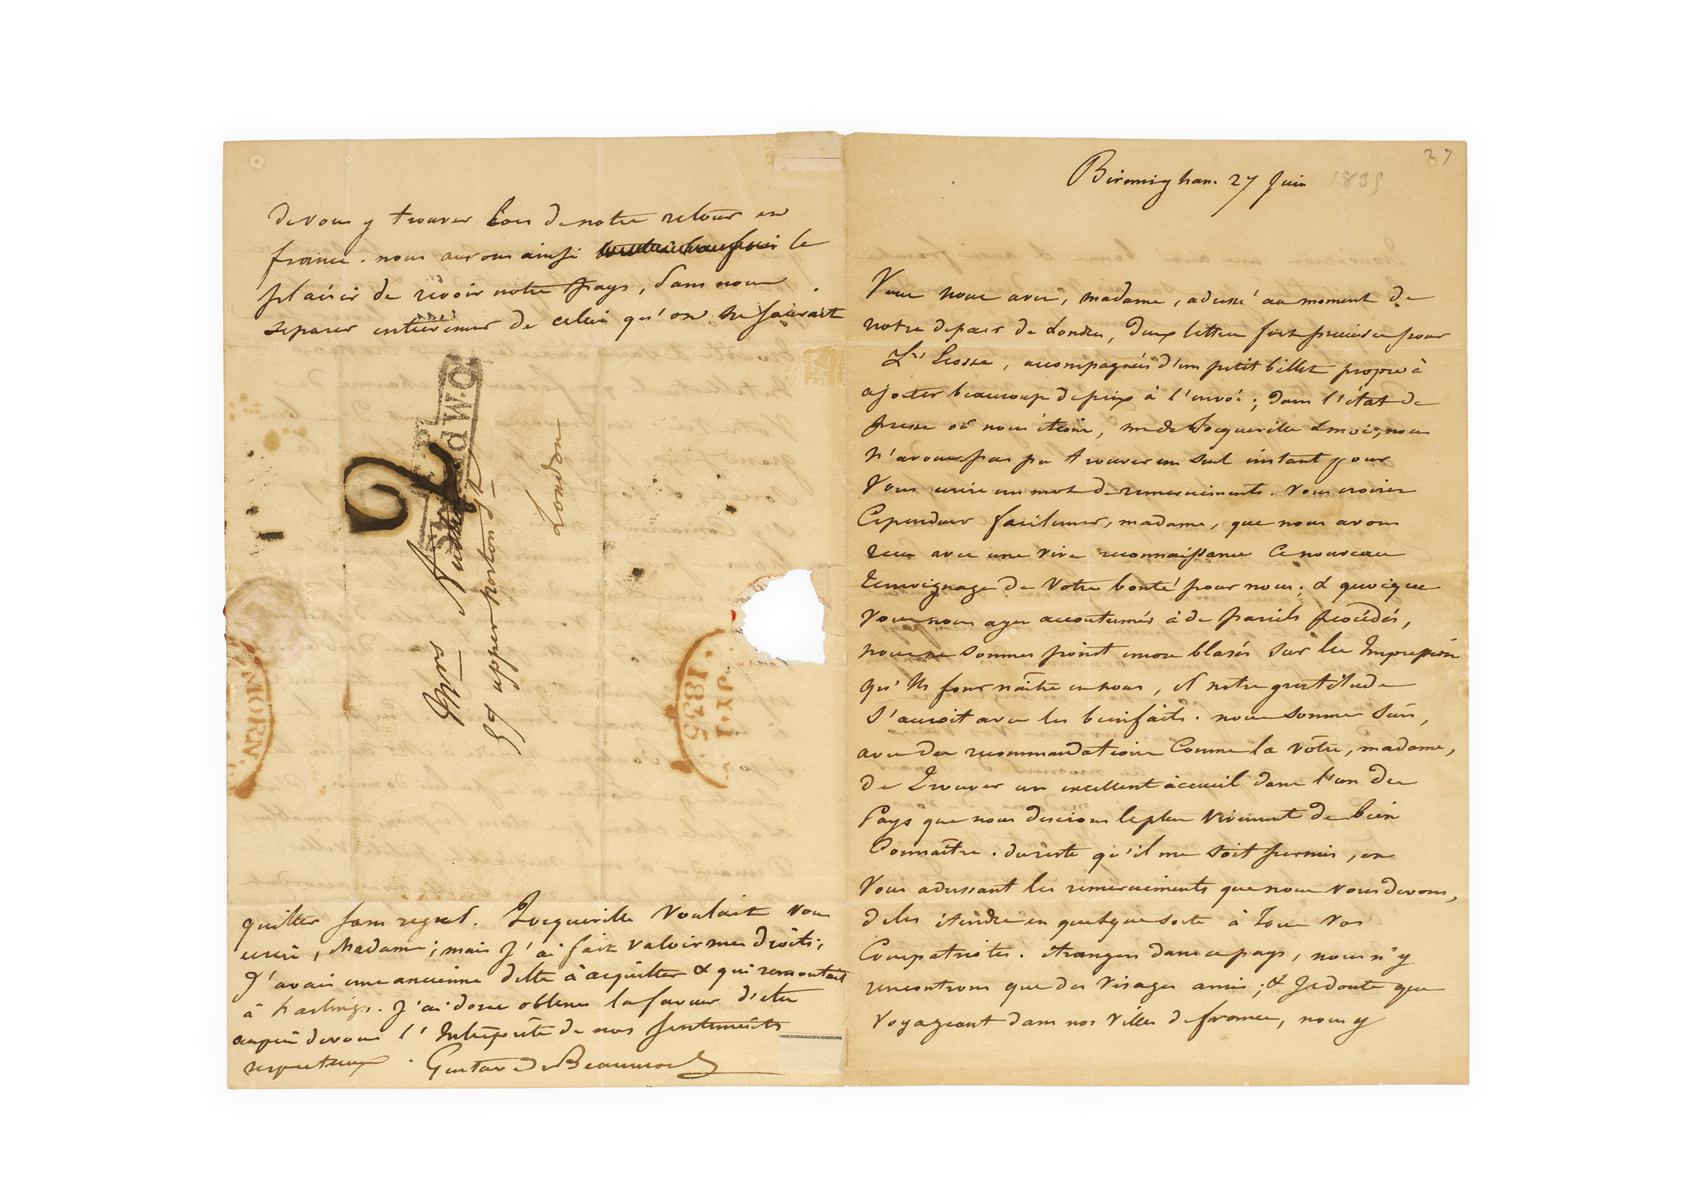 Birmingham 27 Juin 1835
37
Vous nous avez, madame, adressé au moment de
notre départ de Londres, deux lettres fort precieuses pour
L'Ecosse, accompagnées d'un petit billet propre à
ajouter beaucoup de prix à l'envoi; dans l'état de
presse où nous étions, mr de Tocqueville & moi, nous
n'avons pas pu trouver un seul instant pour
Vous ecrire un mot de remerciments. Vous croirez
Cependant facilement, madame, que nous avons
recu avec une vive reconnaissance ce nouveau
temoignage de votre bonté pour nous; & quoique
vous nous ayez accoutumés à de pareils procédés,
nous ne sommes point encore blasés sur les Impressions
qu'ils font naître en nous, et notre gratitude
s'accroit avec les bienfaits. nous sommes sûrs,
avec des recommandations comme la vôtre, madame,
de trouver un excellent accueil dans l'un des
Pays que nous desirions le plus vivement de bien
Connaître. du reste qu'il me soit permis, en
Vous adressant les remerciments que nous vous devons,
de les étendre en quelque sorte à tous vos
Compatriotes. étrangers dans ce pays, nous n'y
rencontrons que des visages amis; & je doute que
voyageant dans nos villes de france, nous y
de vous y trouver lors de notre retour en
france. nous aurons ainsi le
plaisir de revoir notre pays, sans nous
separer entièrement de celui qu'on ne saurait
2
W.O
Mrs
59 upper norton St
London
MORN
JY 1
1835
quitter sans regret. Tocqueville voulait vous
ecrire, Madame; mais j'ai fait valoir mes droits;
J'avais une ancienne dette à acquitter & qui remontait
à hastings. J'ai donc obtenu la faveur d'etre
auprès de vous l'Interprète de nos sentiments
respectueux. Gustave de Beaumont